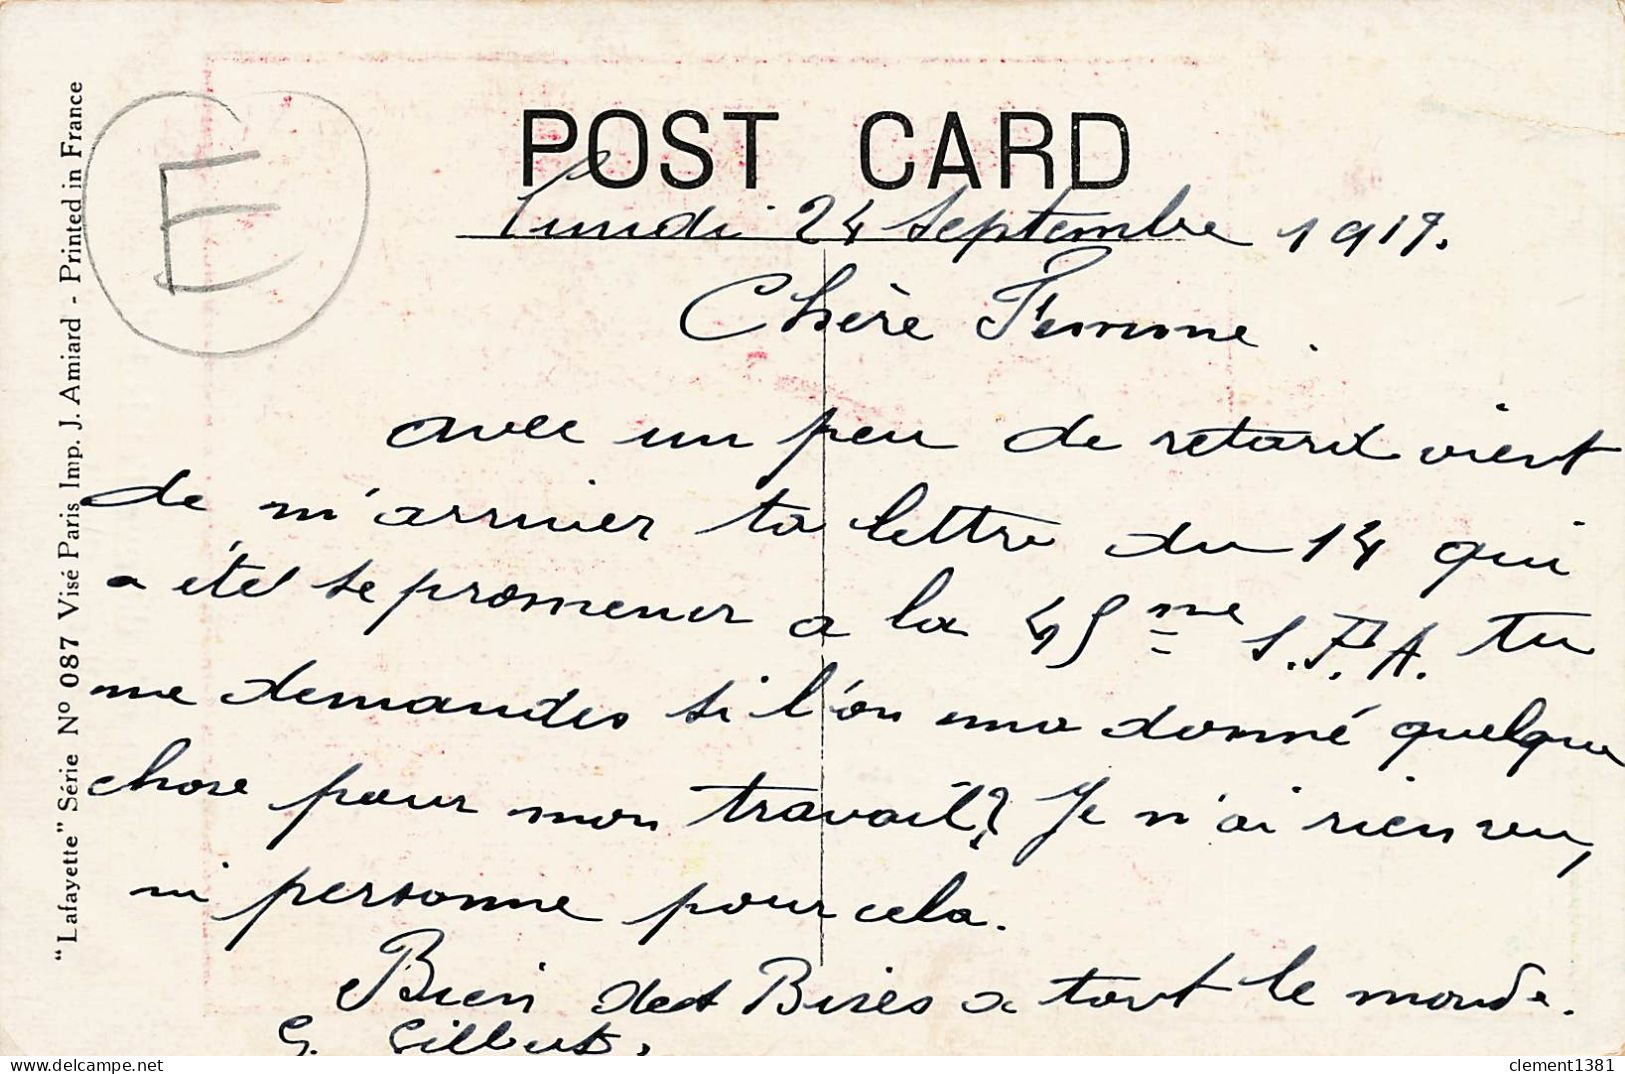 POST CARD
E
lundi 24 Septembre 1917.
Chère Femme.
avec un peu de retard vient
de m'arriver ta lettre du 14 qui
a été se promener a la 45me S.P.A. tu
me demandes si l'on ma donné quelque
chose pour mon travail? Je n'ai rien vu,
ni personne pour cela.
Bien des Bises a tout le monde.
G. Gilbert.
"Lafayette" Série N° 087 Visé Paris Imp. J. Amiard - Printed in France
delcampe.net
clement1381